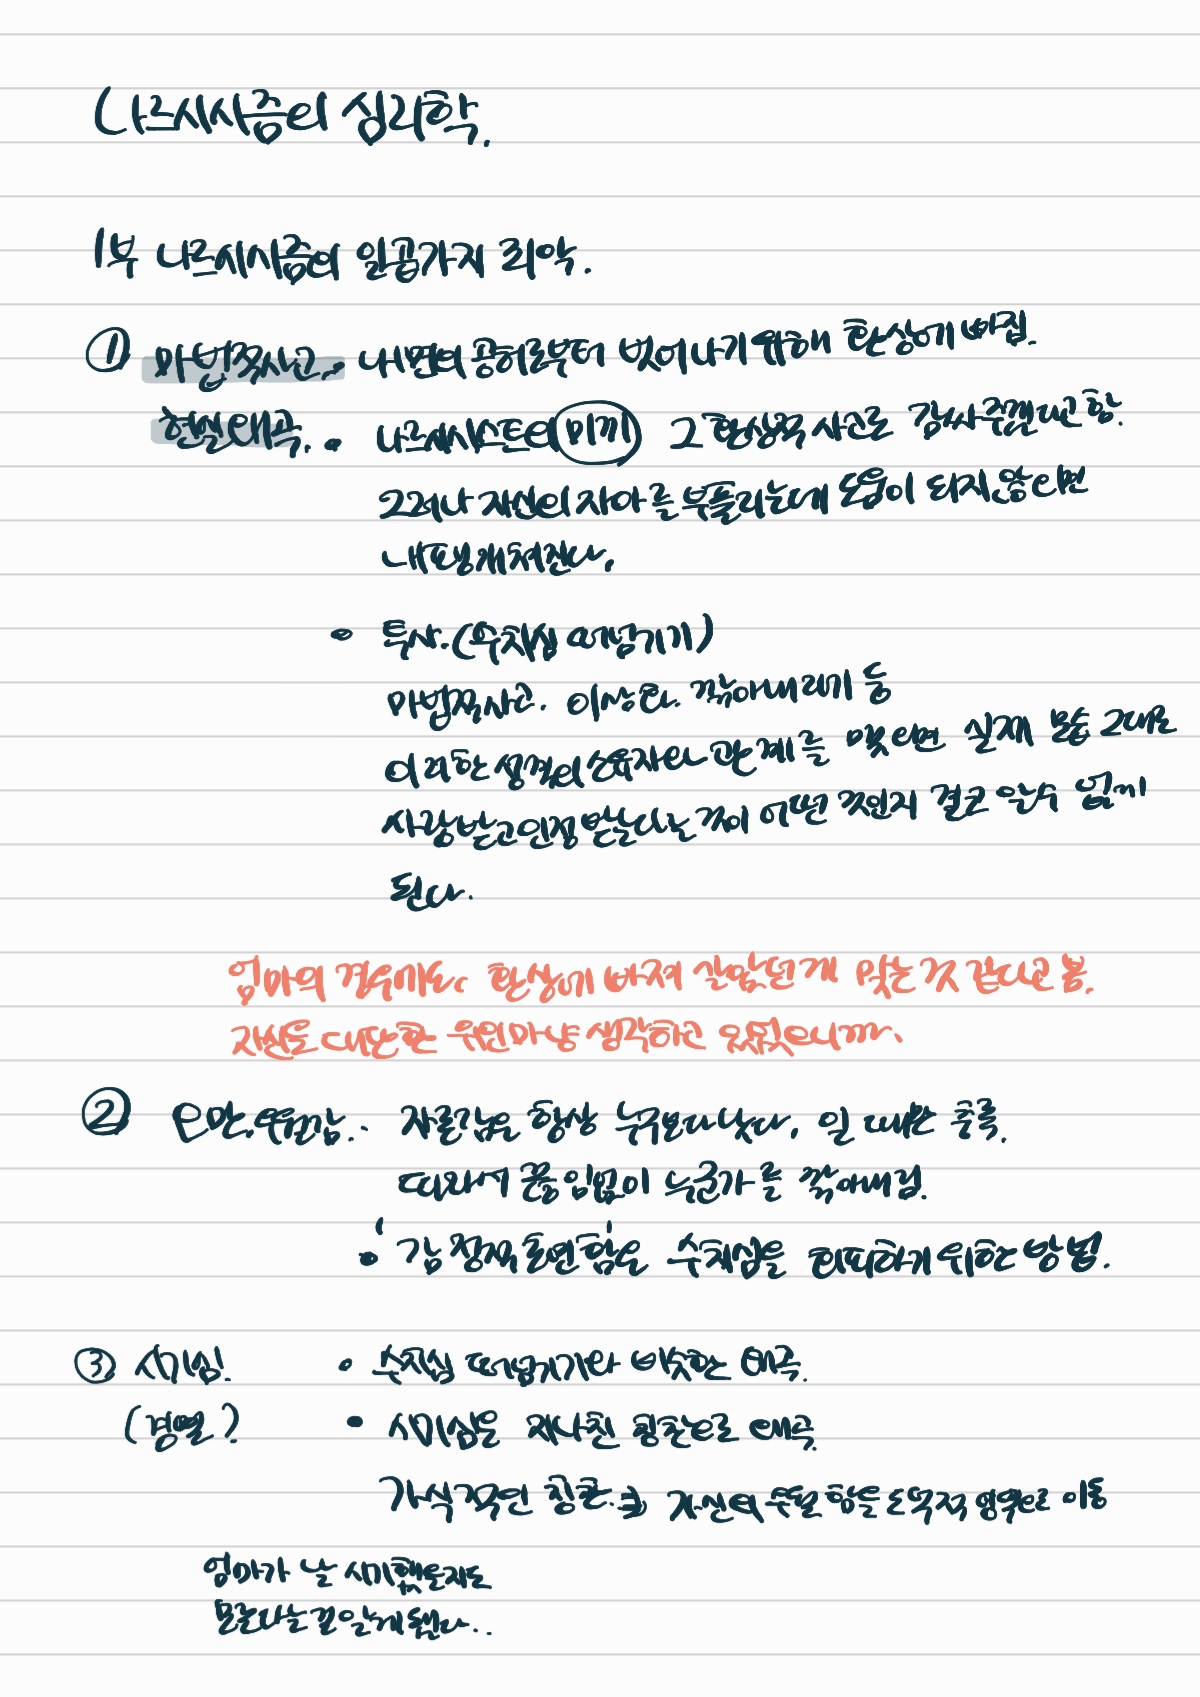 나르시시즘의 심리학.
1부 나르시시즘의 일곱가지 죄악.
① 마법적사고. • 내면의 공허로부터 벗어나기 위해 환상에 빠짐.
현실왜곡. • 나르시시스트의 미끼 그 환상적 사고로 감싸주겠다고 함.
그러나 자신의 자아를 부풀리는데 도움이 되지않으면
내팽개쳐진다.
• 투사.(수치심 떠넘기기)
마법적사고. 이상화. 깎아내리기 등
이러한 성격의 소유자와 관계를 맺으면 실제 모습 그대로
사랑받고 인정받는다는 것이 어떤 것인지 결코 알수 없게
된다.
엄마의 경우에도 환상에 빠져 살았던게 맞는것 같다고 봄.
자신을 대단한 위인마냥 생각하고 있었으니까.
② 오만,우월감. • 자기값은 항상 누구보다 낫다. 일 때만 충족.
따라서 끊임없이 누군가를 깎아내림.
• '감정적 돌연함'을 수치심을 회피하기 위한 방법.
③ 시기심. • 수치심 떠넘기기와 비슷한 왜곡.
(경멸?) • 시기심을 지나친 칭찬으로 왜곡
가식적인 칭찬. 자신의 우월함을 도덕적 영역으로 이동
엄마가 날 시기했을지도
모른다는걸 알게됐다..